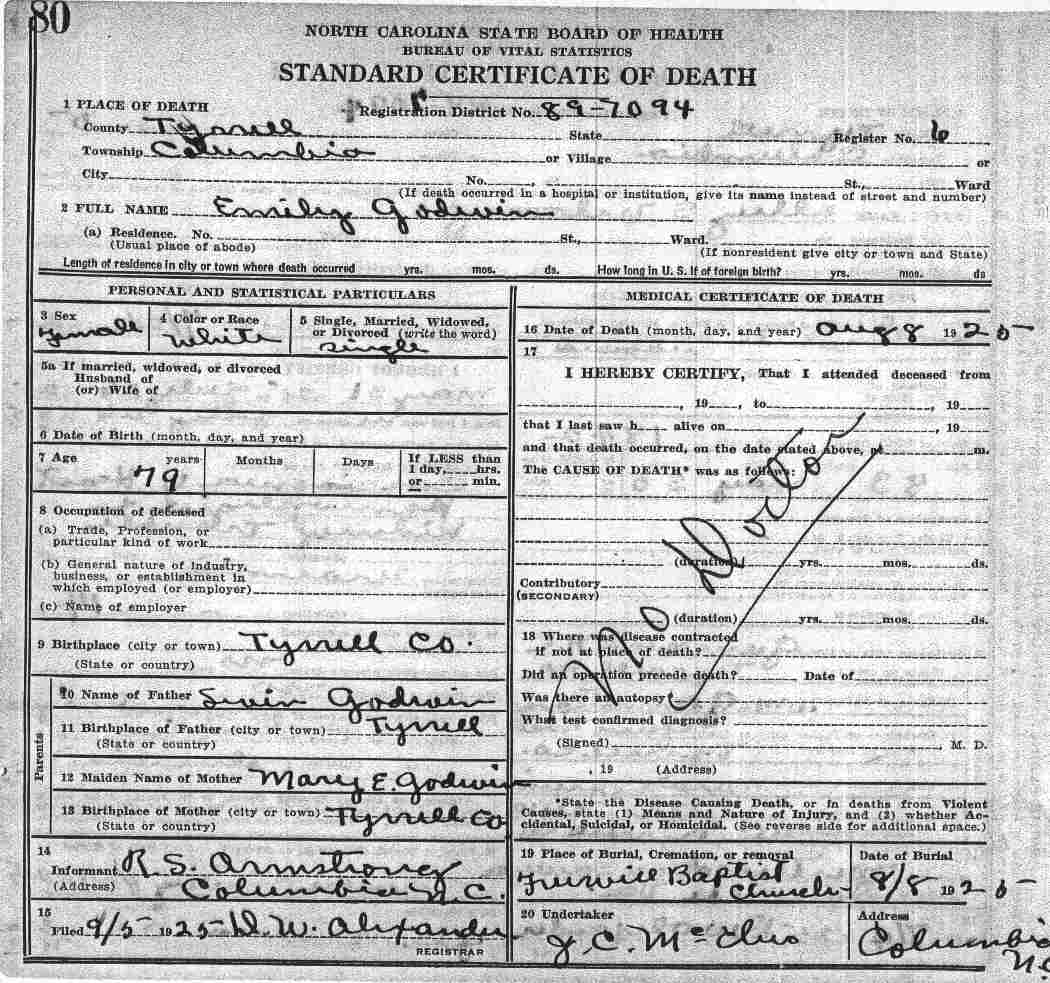 80
NORTH CAROLINA STATE BOARD OF HEALTH
BUREAU OF VITAL STATISTICS
STANDARD CERTIFICATE OF DEATH
1 PLACE OF DEATH
Registration District No. 89-7094
County Tyrrell State Register No. 6
Township Columbia or Village or
City No. , St., Ward
(If death occurred in a hospital or institution, give its name instead of street and number)
2 FULL NAME Emily Godwin
(a) Residence. No. St., Ward.
(Usual place of abode) (If nonresident give city or town and State)
Length of residence in city or town where death occurred yrs. mos. ds. How long in U. S. if of foreign birth? yrs. mos. ds
PERSONAL AND STATISTICAL PARTICULARS
3 Sex 4 Color or Race 5 Single, Married, Widowed,
or Divorced (write the word)
Female White Single
5a If married, widowed, or divorced
Husband of
(or) Wife of
6 Date of Birth (month, day, and year)
7 Age years Months Days If LESS than
1 day, hrs.
79 or min.
8 Occupation of deceased
(a) Trade, Profession, or
particular kind of work
(b) General nature of industry,
business, or establishment in
which employed (or employer)
(c) Name of employer
9 Birthplace (city or town) Tyrrell Co.
(State or country)
Parents
10 Name of Father Godwin
11 Birthplace of Father (city or town) Tyrrell
(State or country)
12 Maiden Name of Mother Mary E. Godwin
13 Birthplace of Mother (city or town) Tyrrell Co
(State or country)
14
Informant R. S. Armstrong
(Address) Columbia N.C.
15
Filed 9/5 1925 D. W. Alexander
REGISTRAR
MEDICAL CERTIFICATE OF DEATH
16 Date of Death (month, day, and year) Aug 8 1925
17
I HEREBY CERTIFY, That I attended deceased from
, 19 , to , 19
that I last saw h alive on , 19
and that death occurred, on the date stated above, at m.
The CAUSE OF DEATH* was as follows:
No Doctor
(duration) yrs. mos. ds.
Contributory
(SECONDARY)
(duration) yrs. mos. ds.
18 Where was disease contracted
if not at place of death?
Did an operation precede death? Date of
Was there an autopsy?
What test confirmed diagnosis?
(Signed) , M. D.
, 19 (Address)
*State the Disease Causing Death, or in deaths from Violent
Causes, state (1) Means and Nature of Injury, and (2) whether Ac-
cidental, Suicidal, or Homicidal. (See reverse side for additional space.)
19 Place of Burial, Cremation, or removal Date of Burial
Baptist
Church 8/8 1925
20 Undertaker Address
J. C. Columbia
N.C